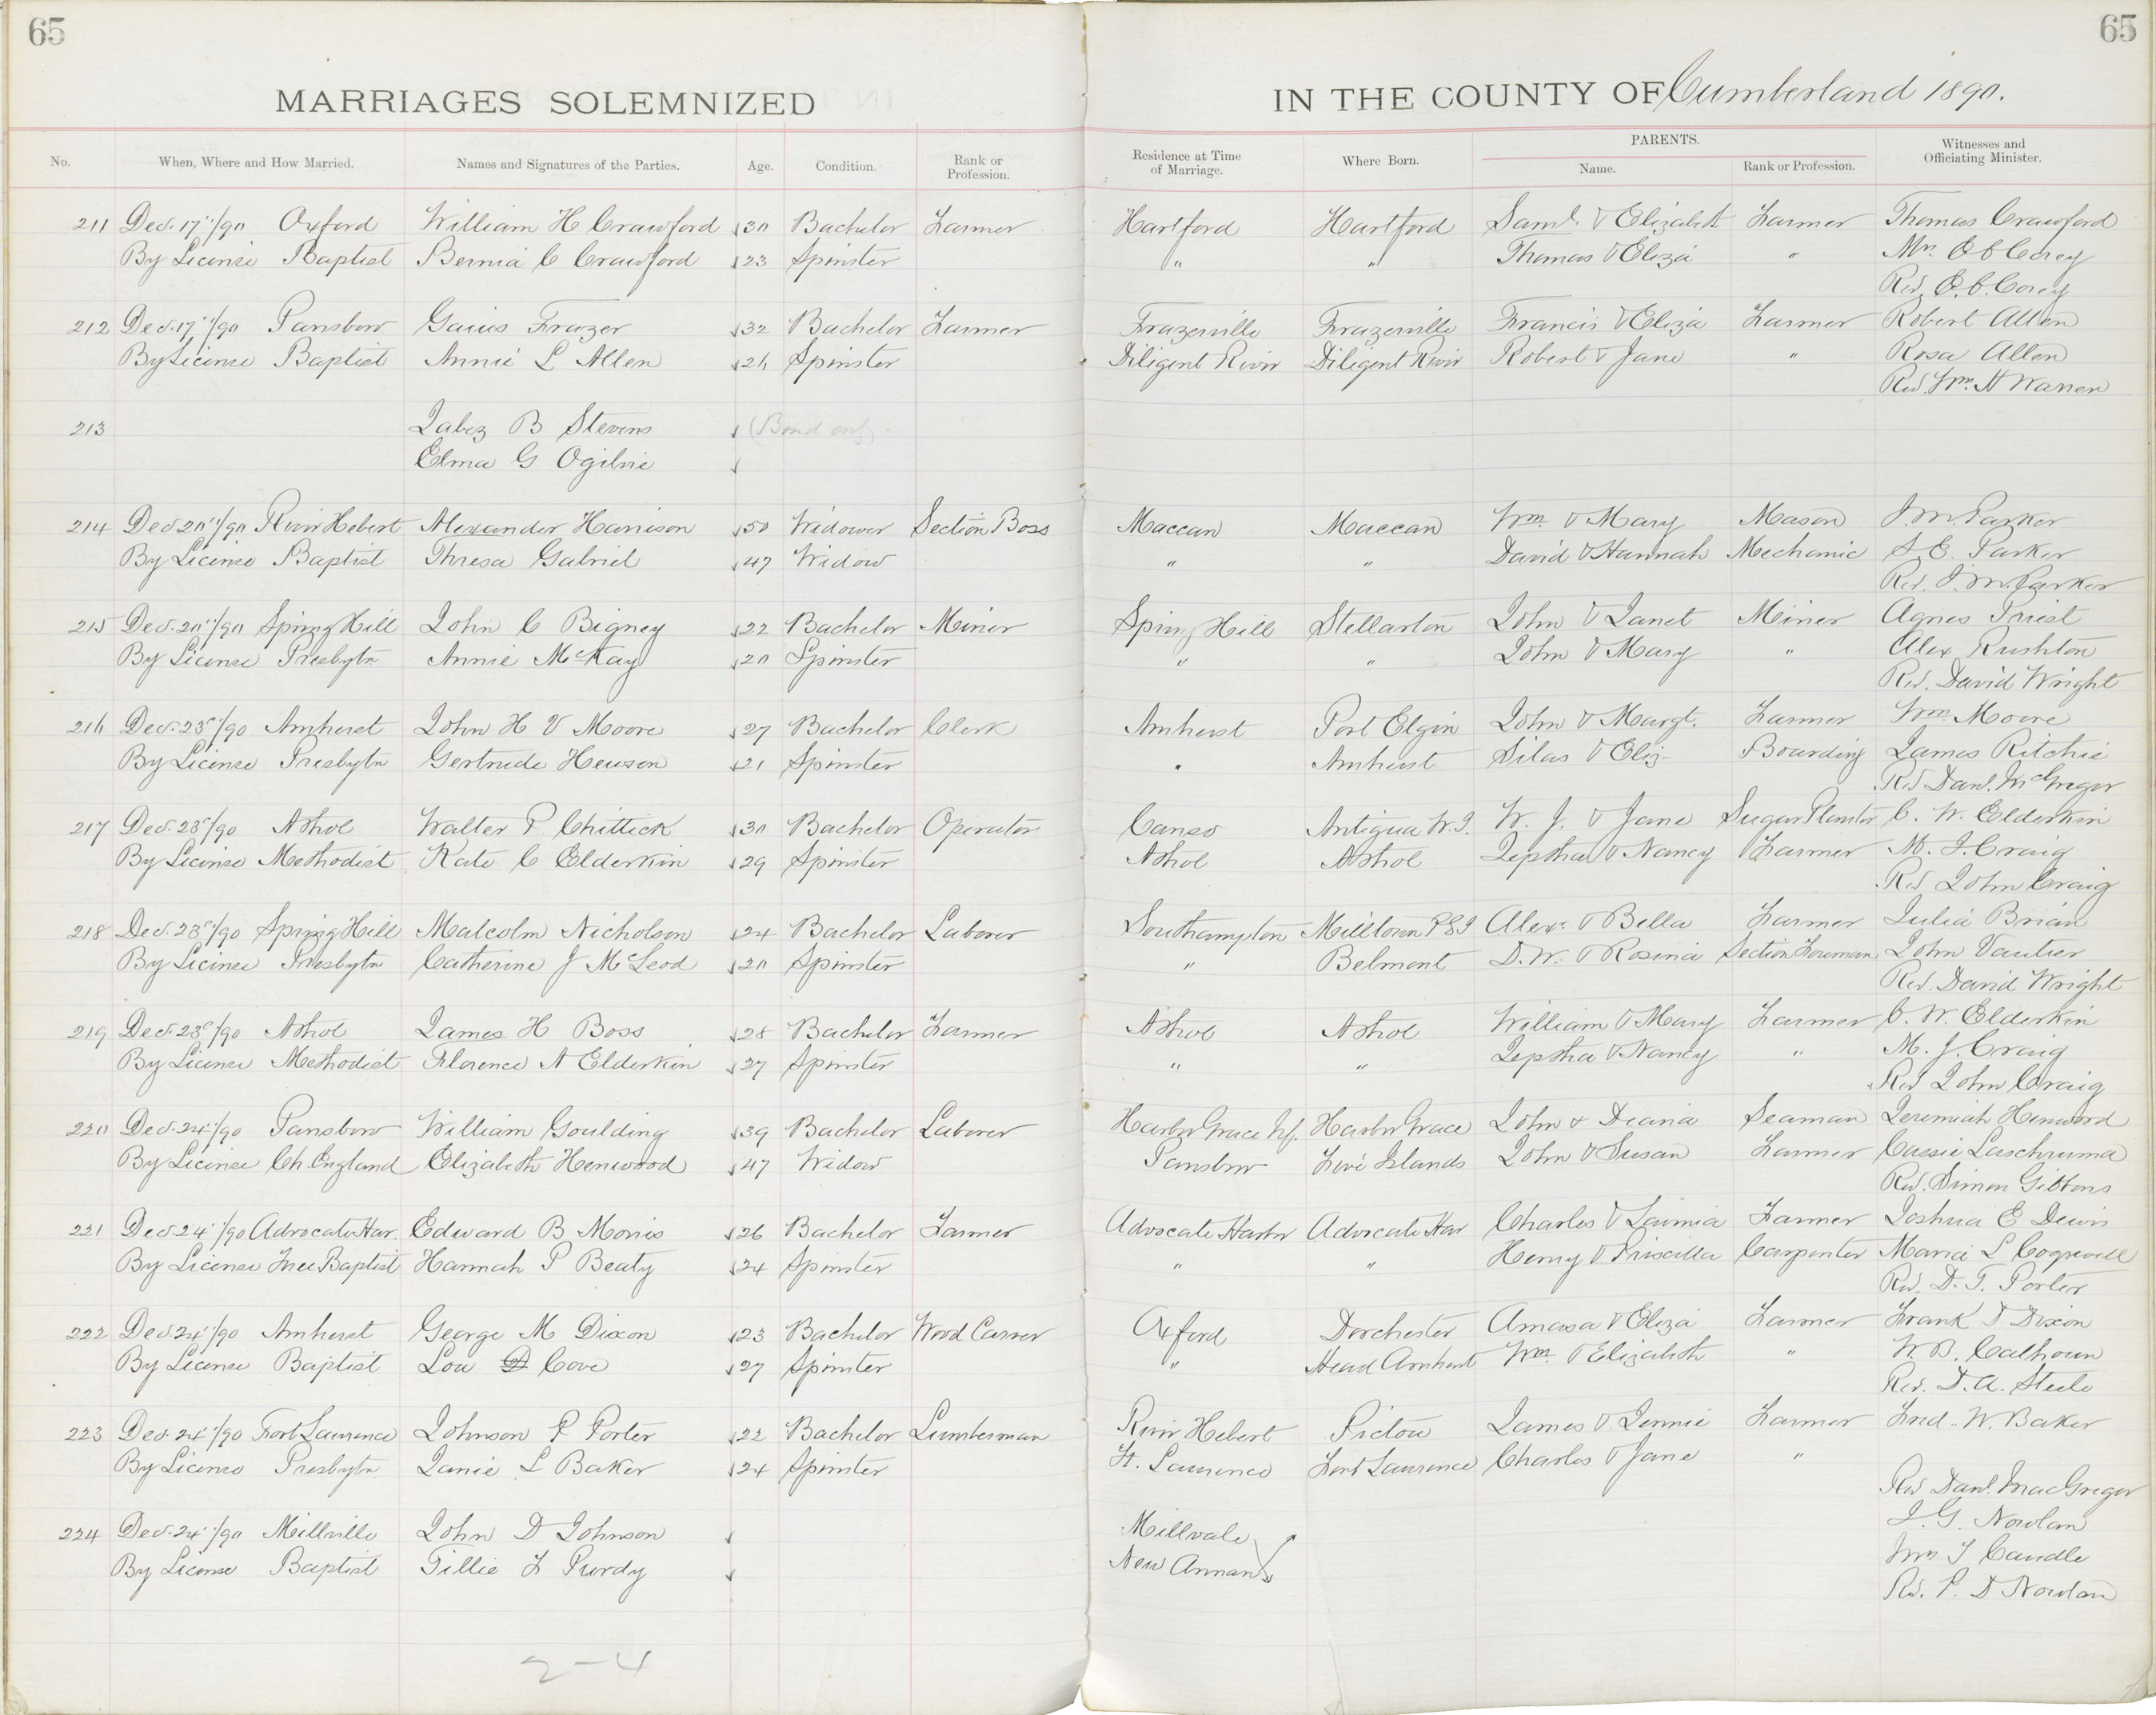 65
65
MARRIAGES SOLEMNIZED
IN THE COUNTY OF Cumberland 1890.
No. When, Where and How Married. Names and Signatures of the Parties. Age. Condition. Rank or Profession. Residence at Time of Marriage. Where Born. PARENTS. Name. Rank or Profession. Witnesses and Officiating Minister.
211 Dec. 17"/90 Oxford William H Crawford 30 Bachelor Farmer Hartford Hartford Saml. & Elizabeth Farmer Thomas Crawford
By License Baptist Bernia C Crawford 23 Spinster " " Thomas & Eliza " Mrs E C Corey
Rev. E. C. Corey
212 Dec. 17"/90 Parrsboro Gaius Frazer 32 Bachelor Farmer Frazerville Frazerville Francis & Eliza Farmer Robert Allen
By License Baptist Annie L Allen 26 Spinster Diligent River Diligent River Robert & Jane " Rosa Allen
Rev. Wm. H Warren
213 Jabez B Stevens (Bond only).
Elma G Ogilvie
214 Dec 20"/90 River Hebert Alexander Harrison 50 Widower Section Boss Maccan Maccan Wm & Mary Mason J. M. Parker
By License Baptist Thresa Gabriel 47 Widow " " David & Hannah Mechanic S. E. Parker
Rev. J. M. Parker
215 Dec. 20"/90 Spring Hill John C Bigney 22 Bachelor Miner Spring Hill Stellarton John & Janet Miner Agnes Priest
By License Presbytn Annie McKay 20 Spinster " " John & Mary " Alex Rushton
Rev. David Wright
216 Dec. 23"/90 Amherst John H V Moore 27 Bachelor Clerk Amherst Port Elgin John & Margt. Farmer Wm Moore
By License Presbytn Gertrude Hewson 21 Spinster " Amherst Silas & Eliz Boarding James Ritchie
Rev Danl. McGregor
217 Dec. 23"/90 Athol Walter P Chittick 30 Bachelor Operator Canso Antigua W. I. W. J. & Jane Sugar Planter C. W. Elderkin
By License Methodist Kate C Elderkin 29 Spinster Athol Athol Jeptha & Nancy Farmer M. J. Craig
Rev John Craig
218 Dec. 23"/90 Spring Hill Malcolm Nicholson 24 Bachelor Laborer Southampton Milltown P E I Alex. & Bella Farmer Julia Brian
By License Presbytn Catherine J McLeod 20 Spinster " Belmont D. W. & Rosina Section Foreman John Vautier
Rev. David Wright
219 Dec. 23"/90 Athol James H Boss 28 Bachelor Farmer Athol Athol William & Mary Farmer C. W. Elderkin
By License Methodist Florence A Elderkin 27 Spinster " " Jeptha & Nancy " M. J. Craig
Rev John Craig
220 Dec. 24"/90 Parrsboro William Goulding 39 Bachelor Laborer Harbor Grace Nf. Harbor Grace John & Diana Seaman Jeremiah Henwood
By License Ch. England Elizabeth Henwood 47 Widow Parrsboro Five Islands John & Susan Farmer Cassie
Rev. Simon Gibbons
221 Dec. 24"/90 Advocate Har. Edward B Morris 26 Bachelor Farmer Advocate Harbor Advocate Har Charles & Farmer Joshua E Dewis
By License Free Baptist Hannah P Beaty 24 Spinster " " Henry & Priscilla Carpenter Maria L Cogswell
Rev. D. T. Porter
222 Dec. 24"/90 Amherst George M Dixon 23 Bachelor Wood Carver Oxford Dorchester Amasa & Eliza Farmer Frank D Dixon
By License Baptist Lou D Cove 27 Spinster " Head Amherst Wm. & Elizabeth " W. B. Calhoun
Rev. D. A. Steele
223 Dec. 24"/90 Fort Laurence Johnson P Porter 22 Bachelor Lumberman River Hebert Pictou James & Jennie Farmer Fred. W. Baker
By License Presbytn Janie L Baker 24 Spinster Ft. Laurence Fort Laurence Charles & Jane "
Rev Danl. MacGregor
224 Dec. 24"/90 Millville John D Johnson Millvale J. G. Nowlan
By License Baptist Tillie F Purdy New Annan Caudle
Rev. P. D Nowlan
2-4